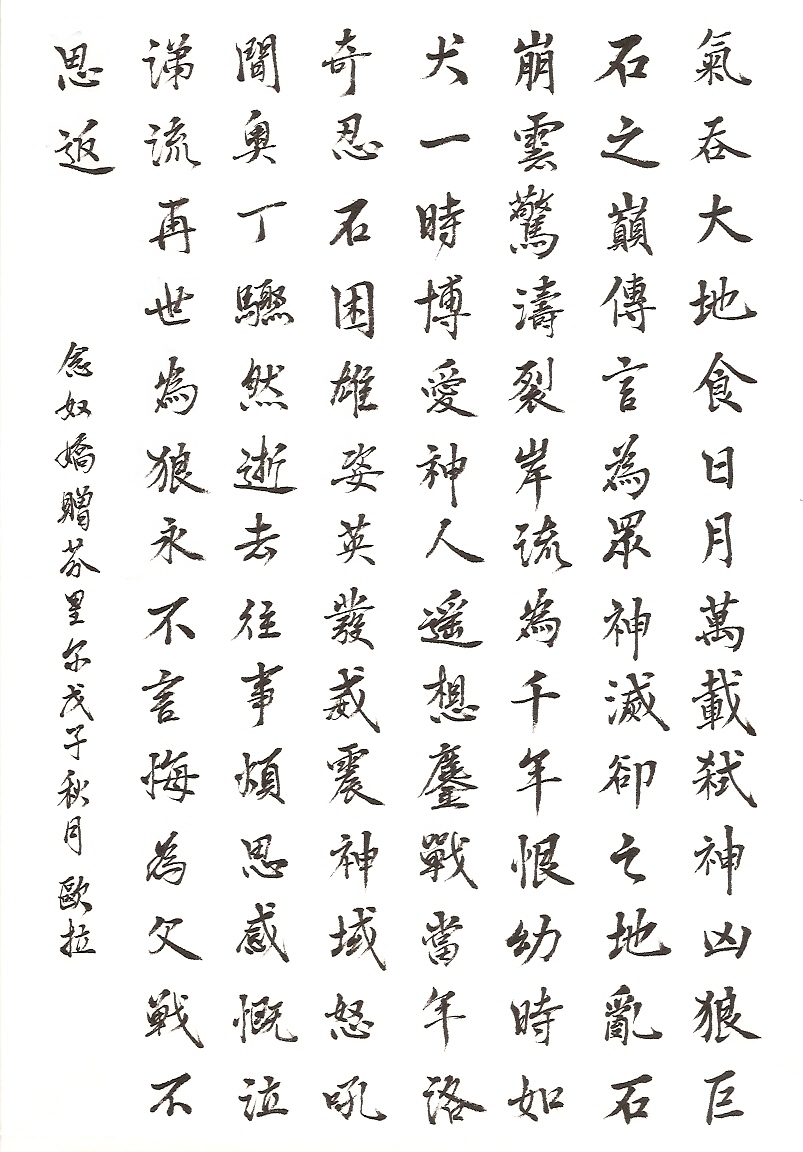 氣吞大地食日月萬載弒神凶狼巨
石之巔傳言為眾神滅卻之地亂石
崩雲驚濤裂岸流為千年恨幼時如
犬一時博愛神人遥想鏖戰當年洛
奇忍石困雄姿英發威震神域怒吼
間奧丁驟然逝去往事煩思感慨泣
涕流再世為狼永不言悔為父戰不
思返
念奴嬌贈芬里尔戊子秋月歐拉